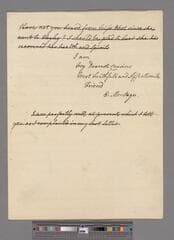 Have not you heard from Miss West since she
went to ? I shall be glad to hear she has
recovered her health and Spirits
I am
my Dearest Cousins
most Faithfull and Affectionate
Friend
E. Montagu
I am perfectly well at present which I tell
you and complain in my last letter.